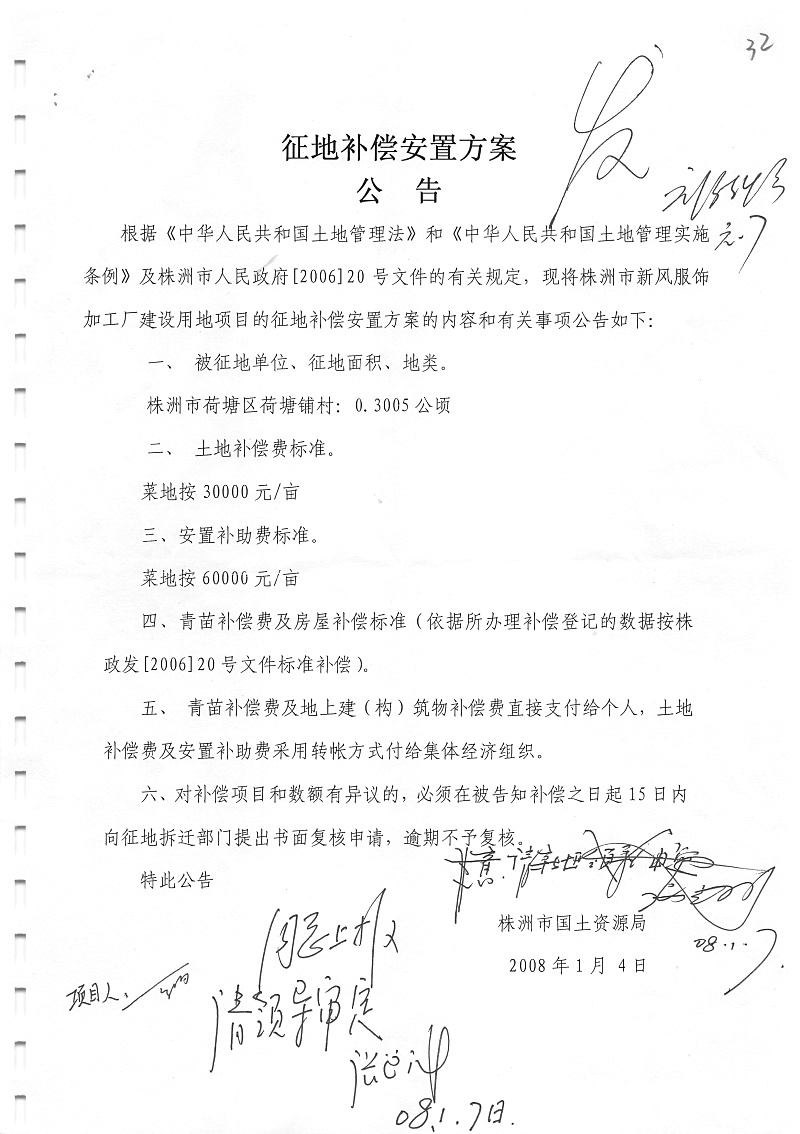 32
发
征地补偿安置方案
公 告
元.7
根据《中华人民共和国土地管理法》和《中华人民共和国土地管理实施
条例》及株洲市人民政府[2006]20 号文件的有关规定，现将株洲市新风服饰
加工厂建设用地项目的征地补偿安置方案的内容和有关事项公告如下：
一、 被征地单位、征地面积、地类。
株洲市荷塘区荷塘铺村：0.3005 公顷
二、 土地补偿费标准。
菜地按 30000 元/亩
三、安置补助费标准。
菜地按 60000 元/亩
四、青苗补偿费及房屋补偿标准（依据所办理补偿登记的数据按株
政发[2006]20 号文件标准补偿）。
五、 青苗补偿费及地上建（构）筑物补偿费直接支付给个人，土地
补偿费及安置补助费采用转帐方式付给集体经济组织。
六、对补偿项目和数额有异议的，必须在被告知补偿之日起 15 日内
向征地拆迁部门提出书面复核申请，逾期不予复核。
特此公告
株洲市国土资源局
08.1.7
2008 年 1 月 4 日
项目人：
同意上报
请领导审定
08.1.7日.